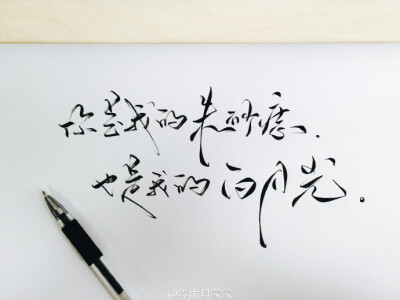 你是我的朱砂痣、
也是我的白月光。